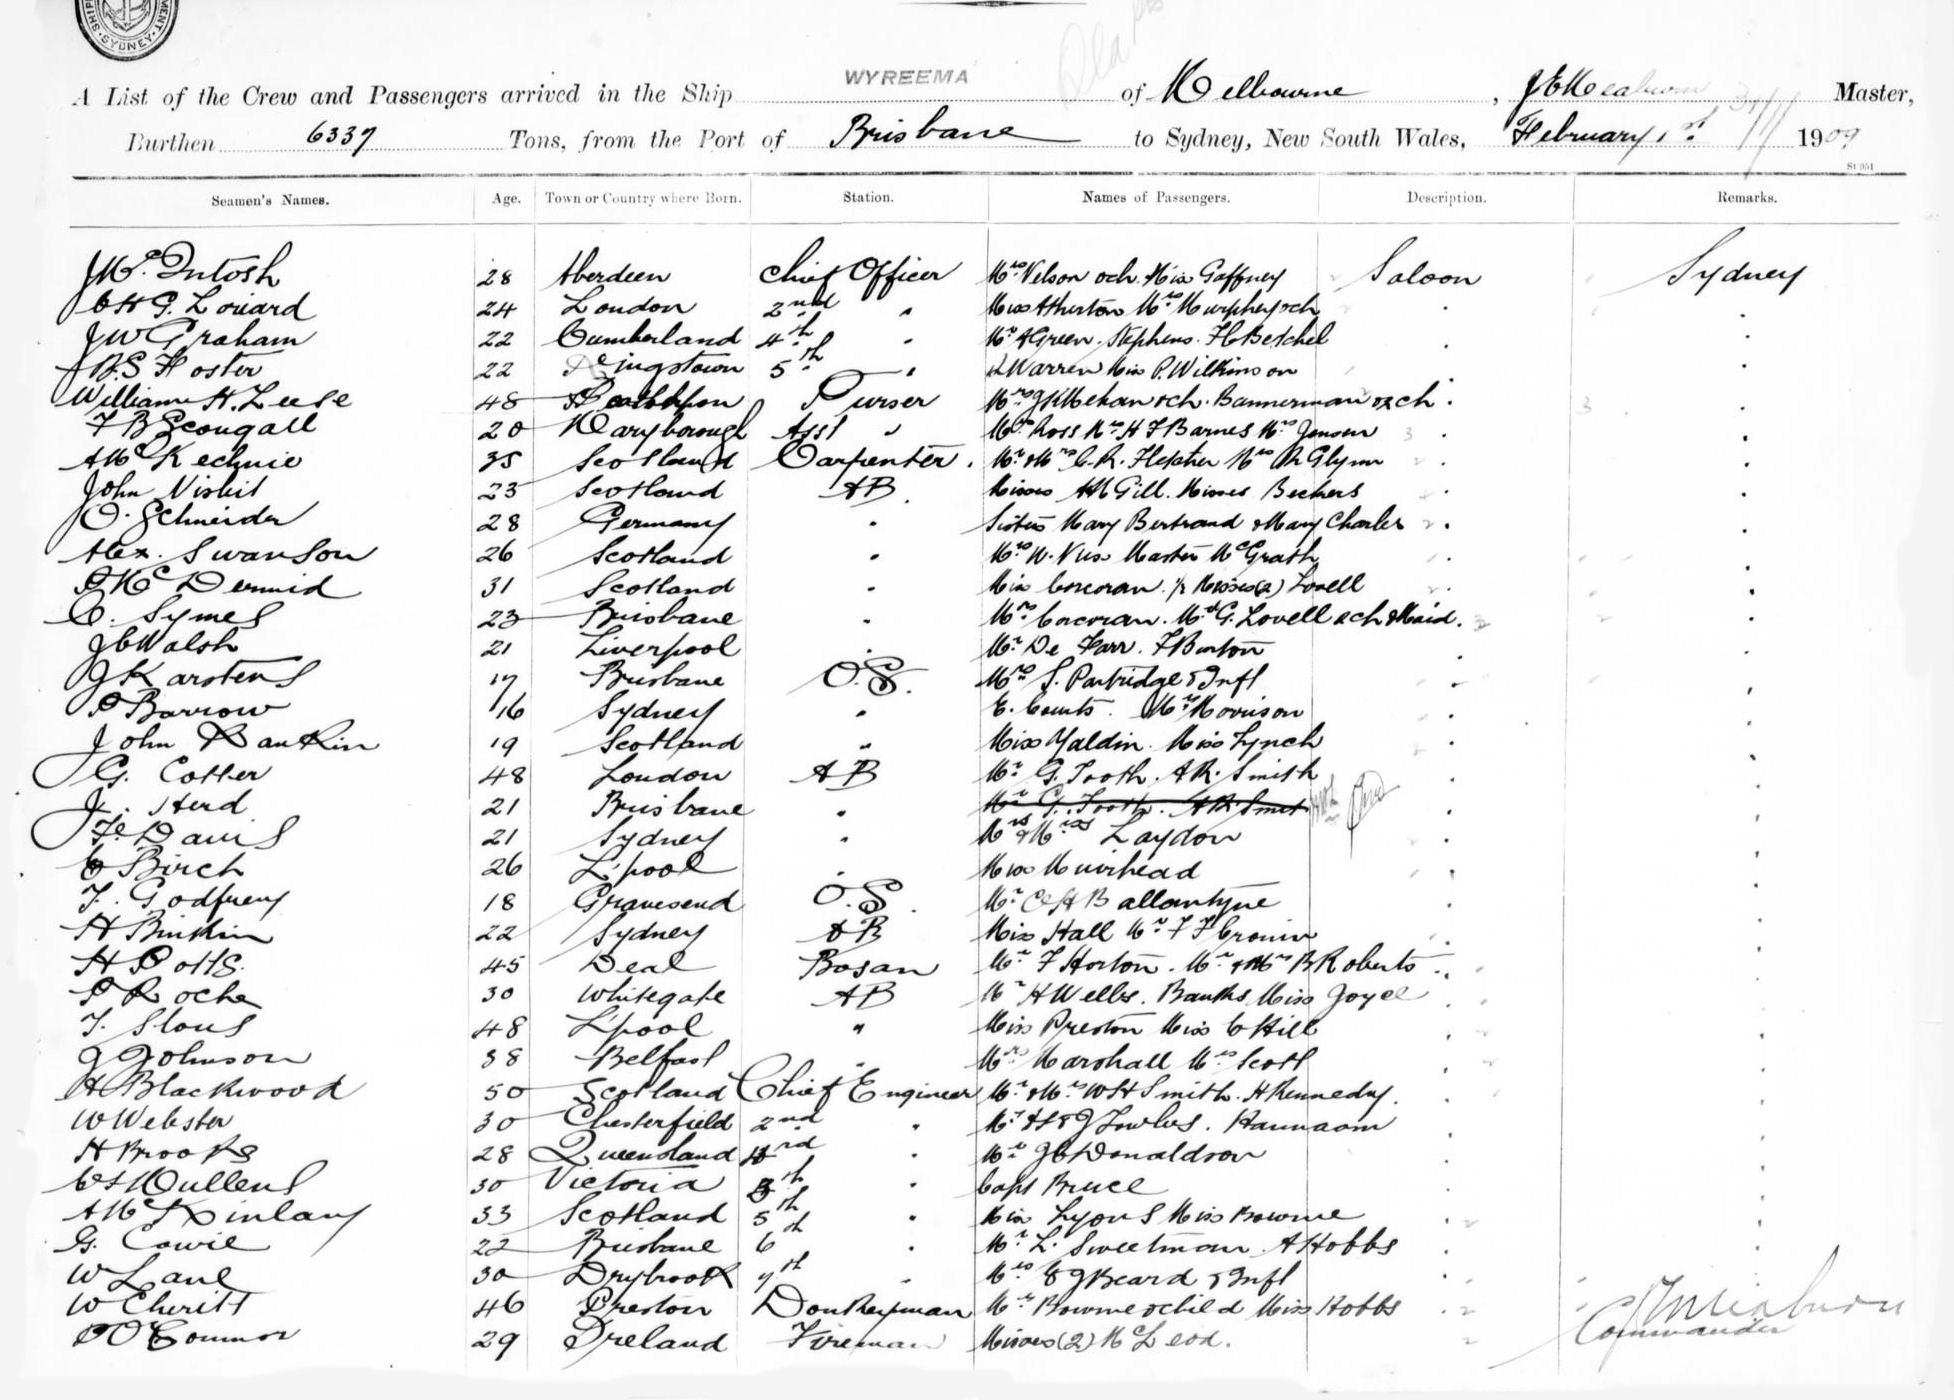 SYDNEY
WYREEMA
A List of the Crew and Passengers arrived in the Ship WYREEMA of Melbourne, Master,
Burthen 6337 Tons, from the Port of Brisbane to Sydney, New South Wales, February 1st 1909
St 951
Seamen's Names. Age. Town or Country where Born. Station. Names of Passengers. Description. Remarks.
J Mc.Intosh 28 Aberdeen Chief Officer Mrs Nelson & ch. Miss Gaffney Saloon Sydney
C H G. Louard 24 London 2nd " Miss Atherton Mrs Murphey & ch
J W Graham 22 Cumberland 4th " Mr A Green. Stephens. H Betchel
Foster 22 Kingstown 5th " Warren Miss P. Wilkinson
William H. Leese 48 Purser Mrs J K Mekan & ch. Bannerman & ch.
F B Scougall 20 Maryborough Asst " Ross Mr H F Barnes Mrs Jensen
A Mc Kechnie 35 Scotland Carpenter. Mr & Mrs C. R. Fletcher Mrs R Glynn
John Nisbit 23 Scotland AB Misses AM Gill. Misses Beckers
O. Schneider 28 Germany " Sisters Mary Bertrand & Mary Charles
Alex. Swanson 26 Scotland " Mrs W. Master McGrath
P Mc Dermid 31 Scotland " Miss Corcoran. Misses (2) Lovell
C. Symes 23 Brisbane " Mrs Corcoran. G. Lovell & ch & Maid.
J C Walsh 21 Liverpool " Mr De Farr. F Burton
J Karstens 17 Brisbane O.S. Mrs S. Partridge & Infl
P Barrow 16 Sydney " E. Counts. Morrison
John Rankin 19 Scotland " Miss Yaldin. Miss Lynch
G. Cotter 48 London AB Mr G. Tooth. A R. Smith
J. Herd 21 Brisbane " Mr G. Tooth. A R. Smith
Davis 21 Sydney " Laydon
C Birch 26 L'pool " Miss Muirhead
F. Godfrey 18 Gravesend O.S. Mr C H Ballantyne
H Binkin 22 Sydney AB Miss Hall Mr F F Cronin
H Potts. 45 Deal Bosan Mr F Horton. Mr & Mrs B Roberts
P Roche 30 Whitegate AB Mr H Welbs. Banks Miss Joyce
T. Slous 48 L'pool " Miss Preston Miss C Hill
J Johnson 38 Belfast " Mrs Marshall Mrs Scott
A Blackwood 50 Scotland Chief Engineer Mr & Mrs W H Smith. H Kennedy.
W Webster 30 Chesterfield 2nd " Mr H & J Fowles. Hannaam
H Brooks 28 Queensland " Mr J C Donaldson
Mullens 30 Victoria " Capt Bruce
A Mc Kinlay 33 Scotland 5th " Miss Lyons Miss Bowme
G. Cowie 22 Brisbane 6th " Mr L. Sweetman. A Hobbs
W Lane 30 Drybrook 7th " Mrs E J Beard & Infl
W Cheritt 46 Preston Donkeyman Mrs Bowme & child Miss Hobbs
P O'Connor 29 Ireland Fireman Misses (2) McLeod.
Commander